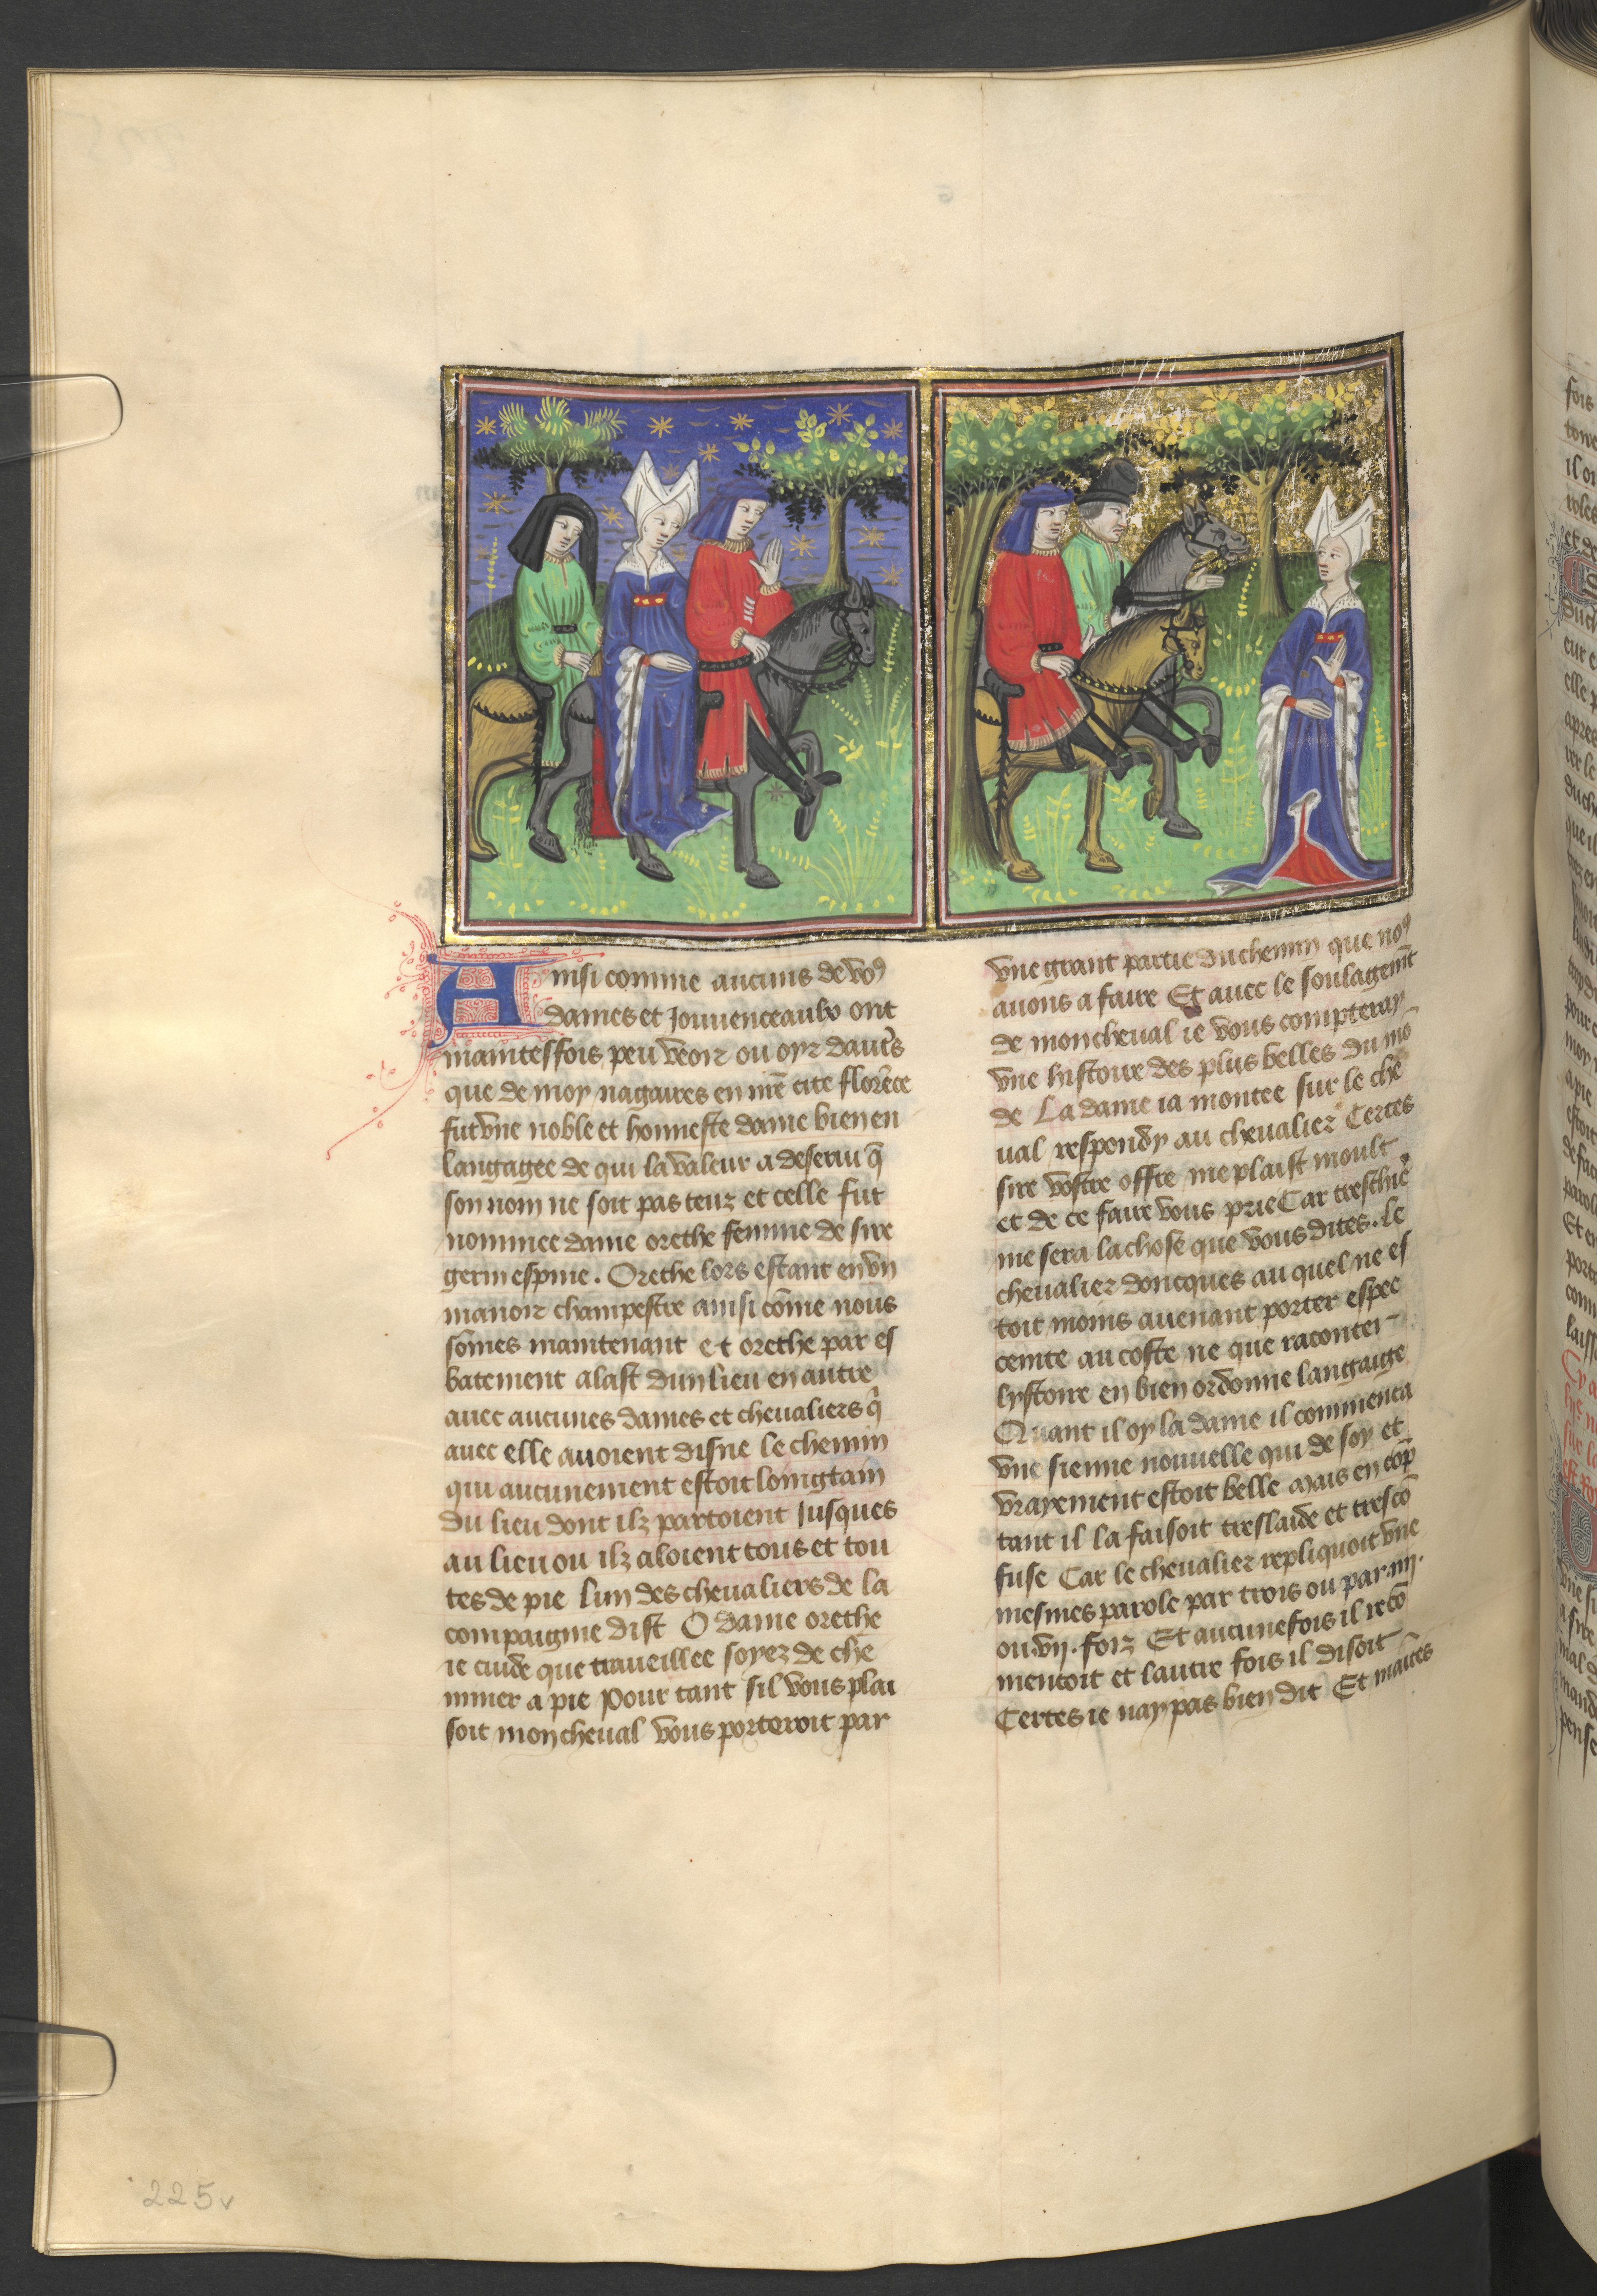 Ainsi comme aucuns de vo⁹
dames et Jouuenceaulx ont
maintesfois peu veoir ou oyr daut̄s
que de moy nagaires en nr̄e cite flor̄ece
fut vne noble et honneste dame bien en
langagee de qui la valeur a deserui q̄
son nom ne soit pas teuz et celle fut
nommee dame orethe femme de sire
germ espine. Orethe lors estant en vn
manoir champestre ainsi cōme nous
sōmes maintenant et orethe par es
batement alast dun lieu en autre
auec aucunes dames et cheualiers q̄
auec elle auoient disne le chemin
qui aucunement estoit loingtain
du lieu dont ilz partoient Jusques
au lieu ou ilz aloient tous et tou
tes de pie lun des cheualiers de la
compaignie dist O dame orethe
ie cuide que traueillee soyez de che
miner a pie Pour tant sil vous plai
soit mon cheual vous porteroit par
vne grant partie du chemin que no⁹
auons a faire Et auec le soulagem̄t
de mon cheual ie vous compteray
vne histoire des plus belles du mō
de La dame ia montee sur le che
ual respondy au cheualier Certes
sire vostre offre me plaist moult
et de ce faire vous prie Car treschie͛
me sera la chose que vous dites. Le
cheualier doncques au quel ne es
toit moins auenant porter espee
ceinte au coste ne que raconter
lystoire en bien ordonne langaige
Quant il oy la dame il commenca
vne sienne nouuelle qui de soy et
vrayement estoit belle Mais en cōp
tant il la faisoit treslaide et trescō
fuse Car le cheualier repliquoit vne
mesmes parole par trois ou par .iiij.
ou .vj. foiz Et aucunefois il recō
mencoit et lautre fois il disoit
Certes ie nay pas bien dit Et maītes
225v